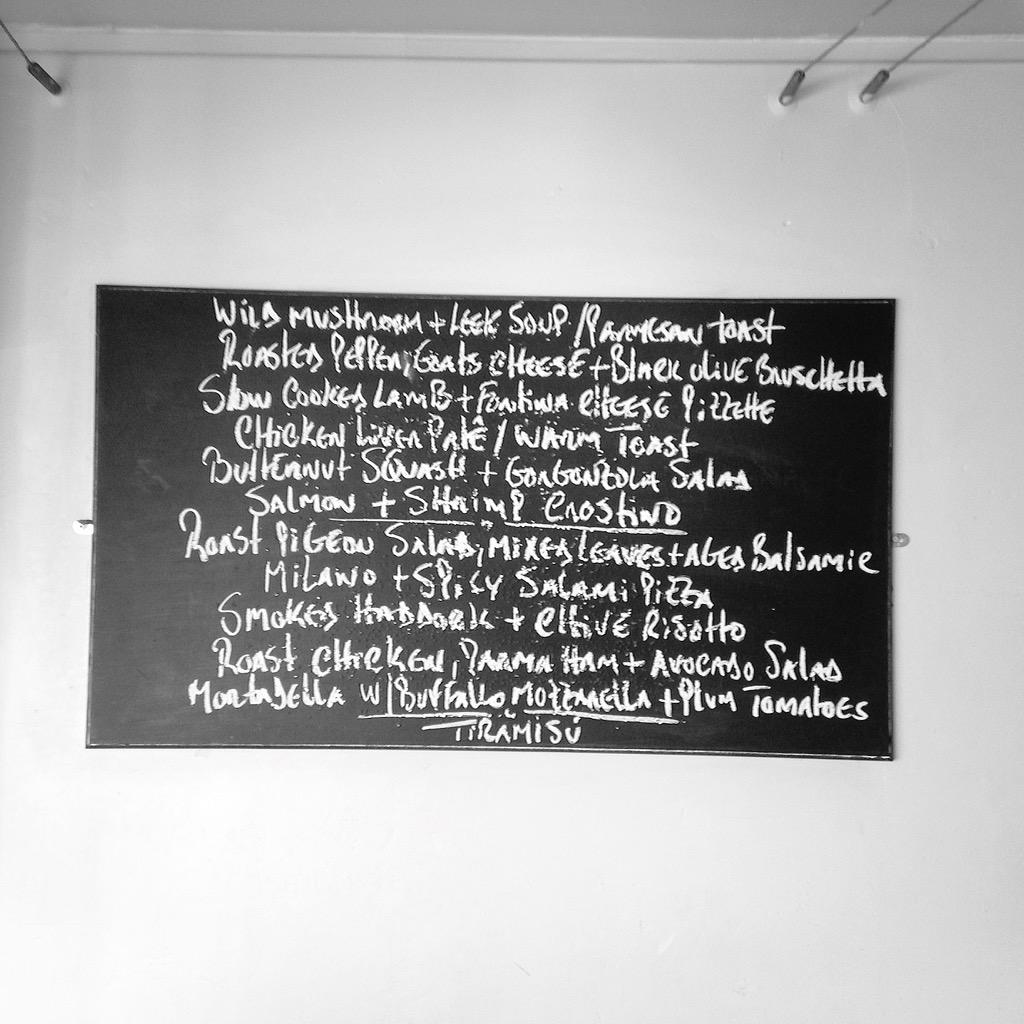 WILD MUSHROOM + LEEK SOUP / PARMESAN TOAST
ROASTED PEPPER, GOATS CHEESE + BLACK OLIVE BRUSCHETTA
SLOW COOKED LAMB + FONTINA CHEESE PIZZETTE
CHICKEN LIVER PATÊ / WARM TOAST
BUTTERNUT SQUASH + GORGONZOLA SALAD
SALMON + SHRIMP CROSTINO
ROAST PIGEON SALAD, MIXED LEAVES + AGED BALSAMIC
MILANO + SPICY SALAMI PIZZA
SMOKED HADDOCK + CHIVE RISOTTO
ROAST CHICKEN, PARMA HAM + AVOCADO SALAD
MORTADELLA W/ BUFFALO MOZZARELLA + PLUM TOMATOES
TIRAMISÚ